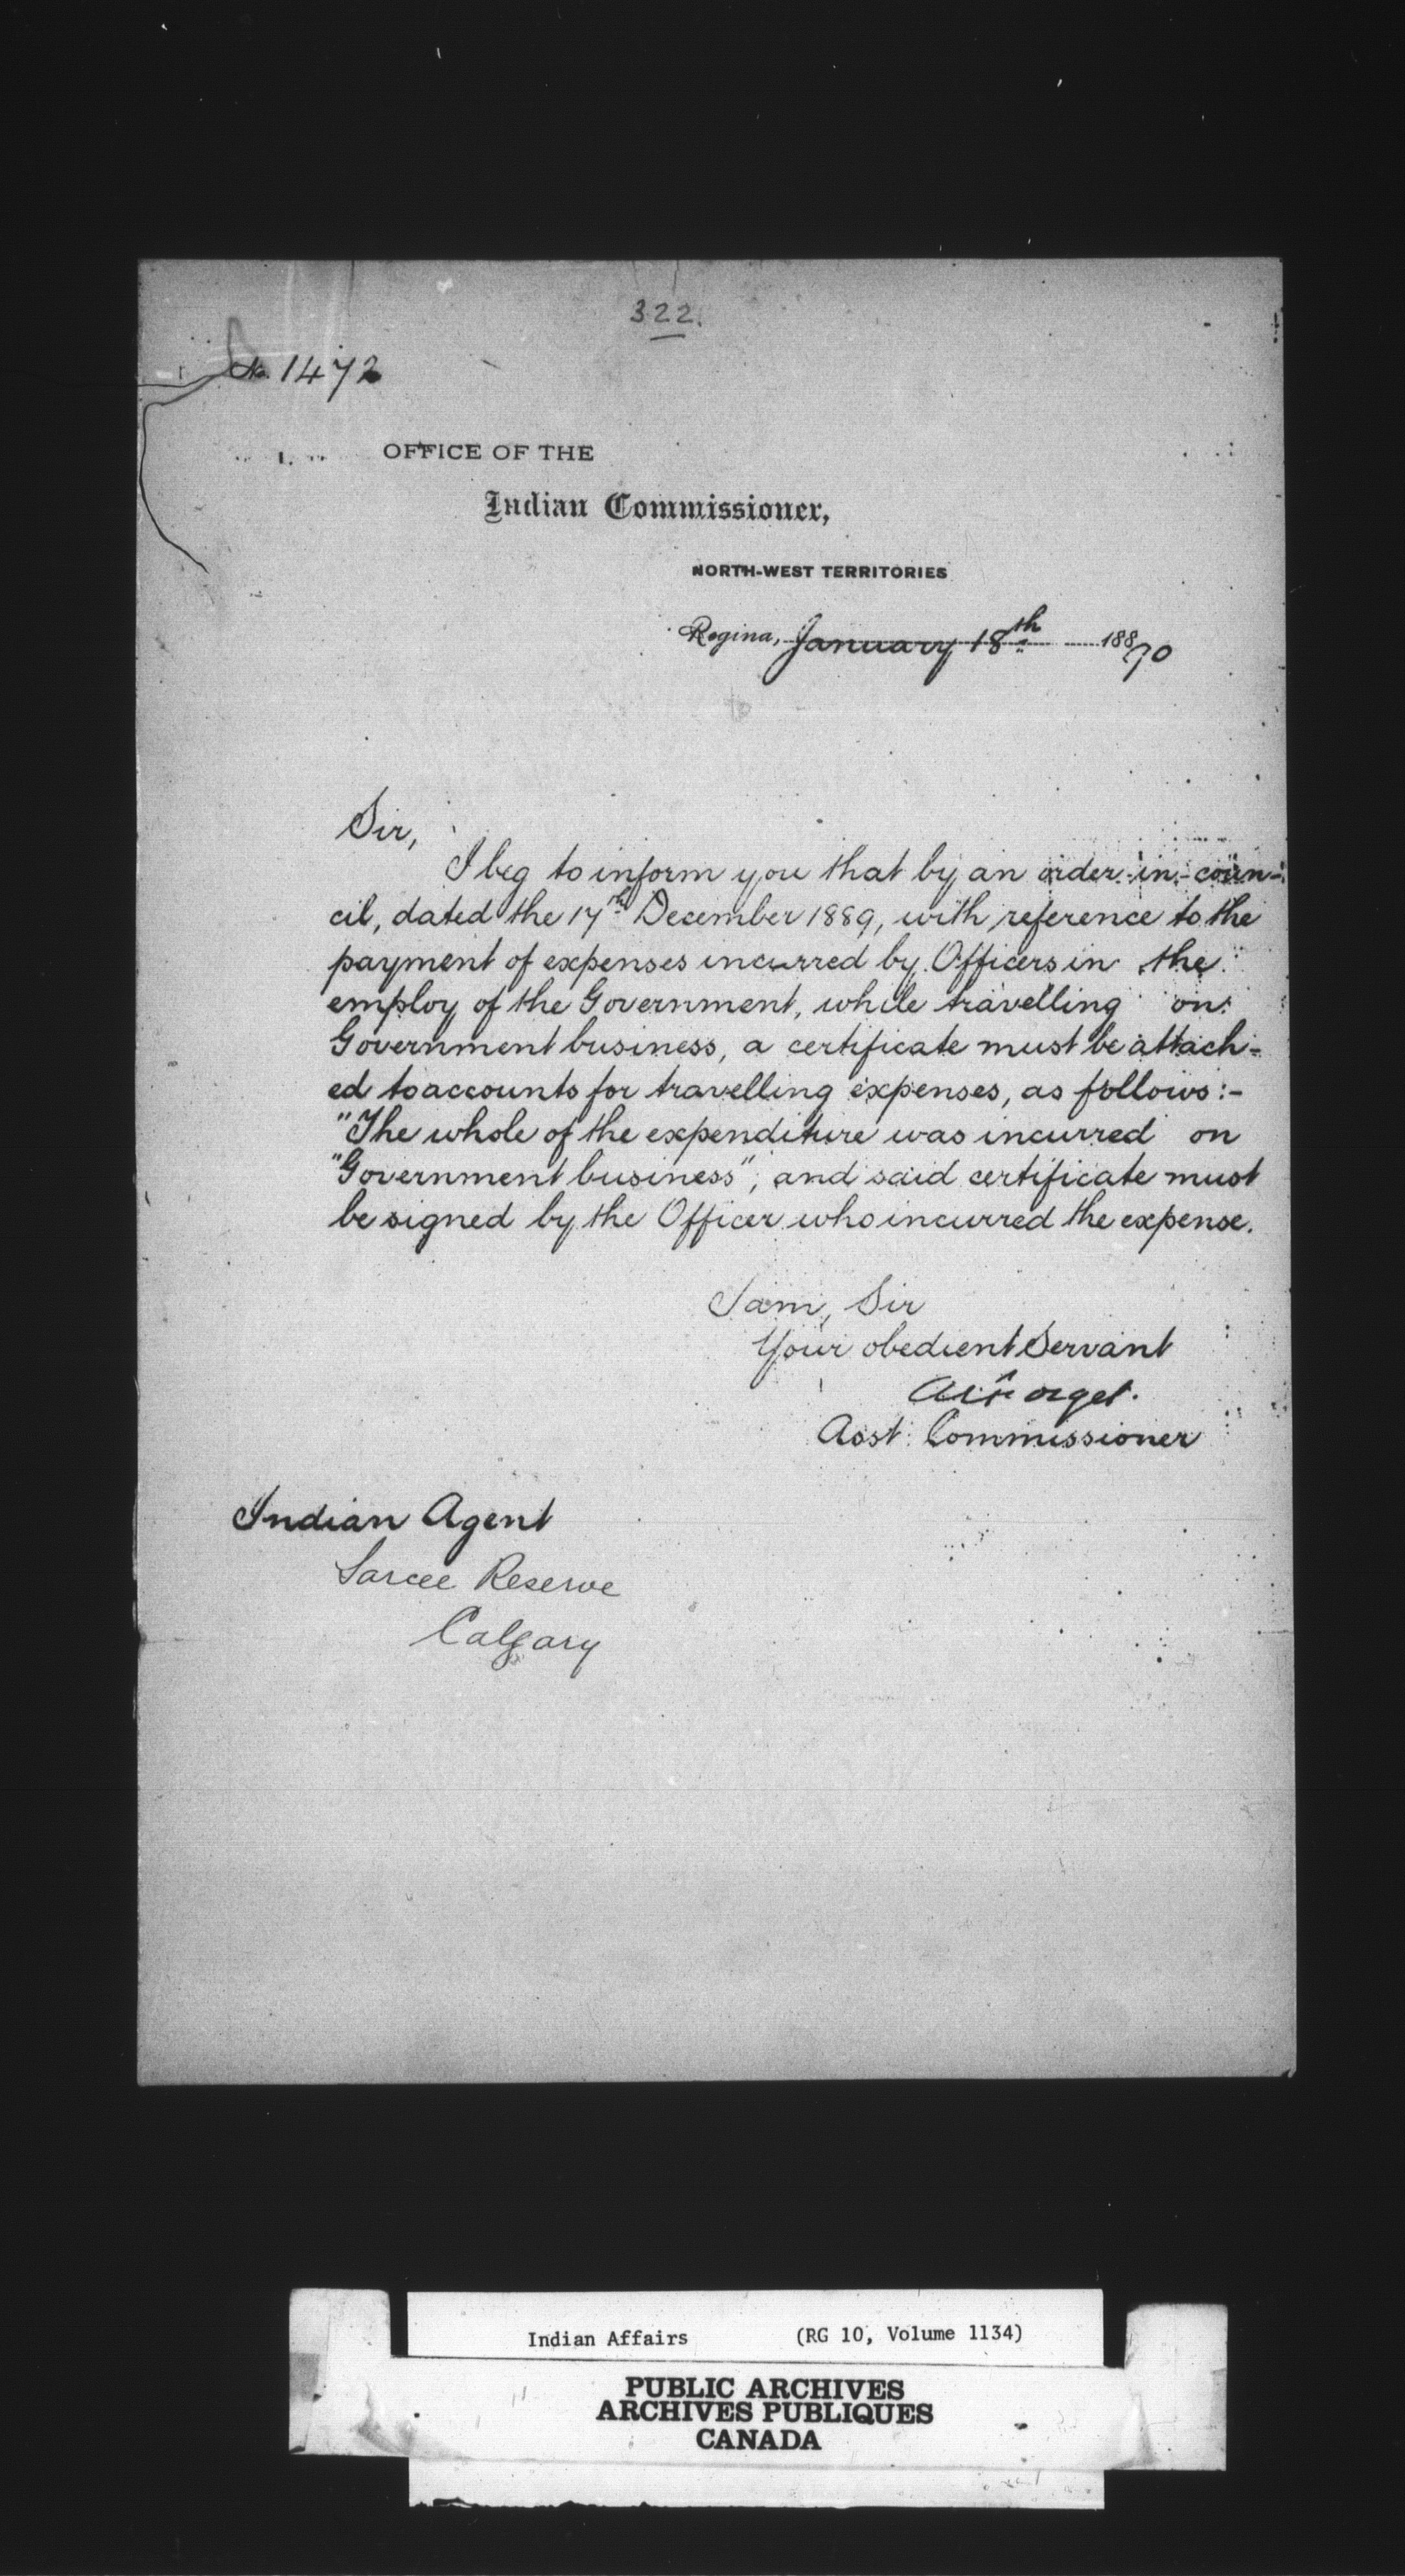 322.
No. 1472
OFFICE OF THE
Indian Commissioner,
NORTH-WEST TERRITORIES
Regina, January 18th 18890
Sir,
I beg to inform you that by an order-in-coun-
cil, dated the 17th December 1889, with reference to the
payment of expenses incurred by Officers in the
employ of the Government, while travelling on
Government business, a certificate must be attach-
ed to accounts for travelling expenses, as follows:-
"The whole of the expenditure was incurred on
"Government business", and said certificate must
be signed by the Officer who incurred the expense.
I am, Sir
Your obedient Servant
A E Forget.
Asst. Commissioner
Indian Agent
Sarcee Reserve
Calgary
Indian Affairs (RG 10, Volume 1134)
PUBLIC ARCHIVES
ARCHIVES PUBLIQUES
CANADA